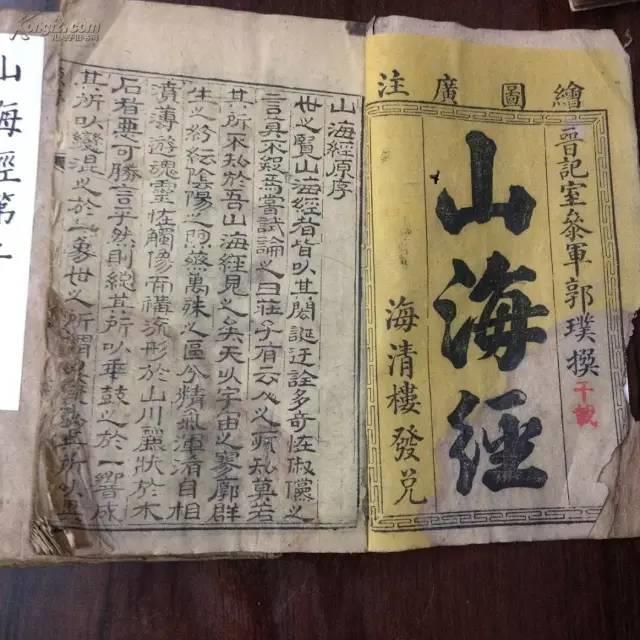 繪圖廣注
晉記室叅軍郭璞撰
千載
山海經
海清樓發兌
山海經原序
世之覽山海經者皆以其閎誕迂誇多奇怪俶儻之
言莫不疑焉嘗試論之曰莊子有云人之所知莫若
其所不知於吾山海經見之矣夫以宇宙之寥廓群
生之紛紜陰陽之煦蒸萬殊之區分精氣渾淆自相
濆薄遊魂靈怪觸像而構流形於山川麗狀於木
石者惡可勝言乎然則總其所以乖鼓之於一響成
其所以變混之於一象世之所謂
山海經第